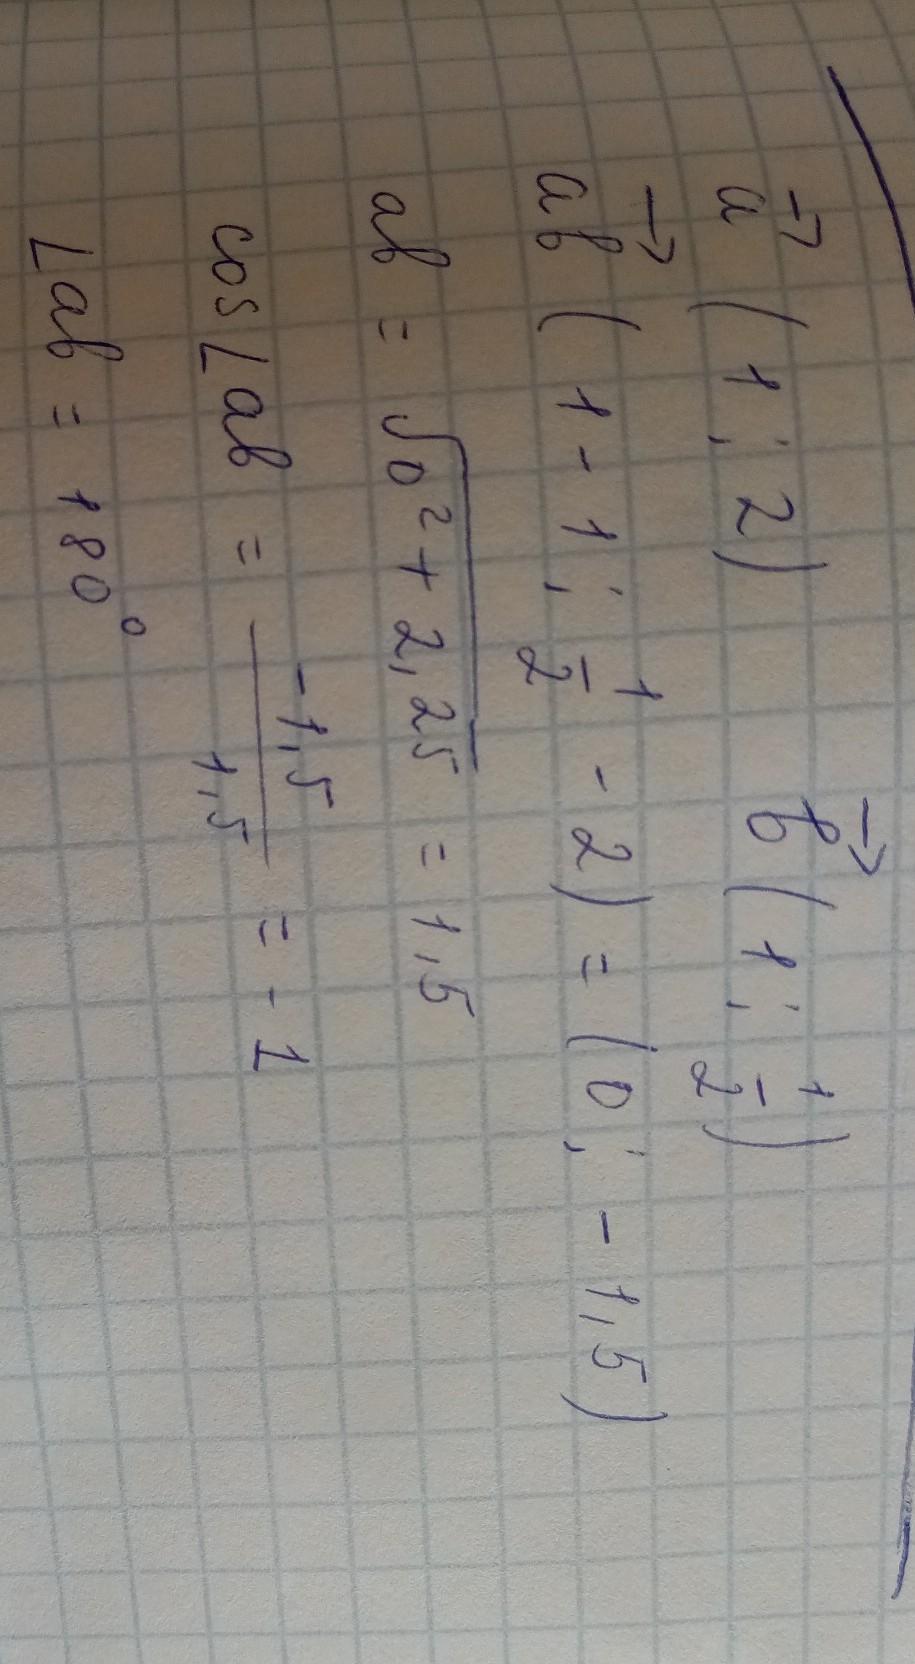 a⃗ (1; 2) b⃗ (1; 1/2)
ab⃗ (1 - 1; 1/2 - 2) = (0; -1,5)
ab = √(0² + 2,25) = 1,5
cos∠ab = -1,5/1,5 = -1
∠ab = 180°